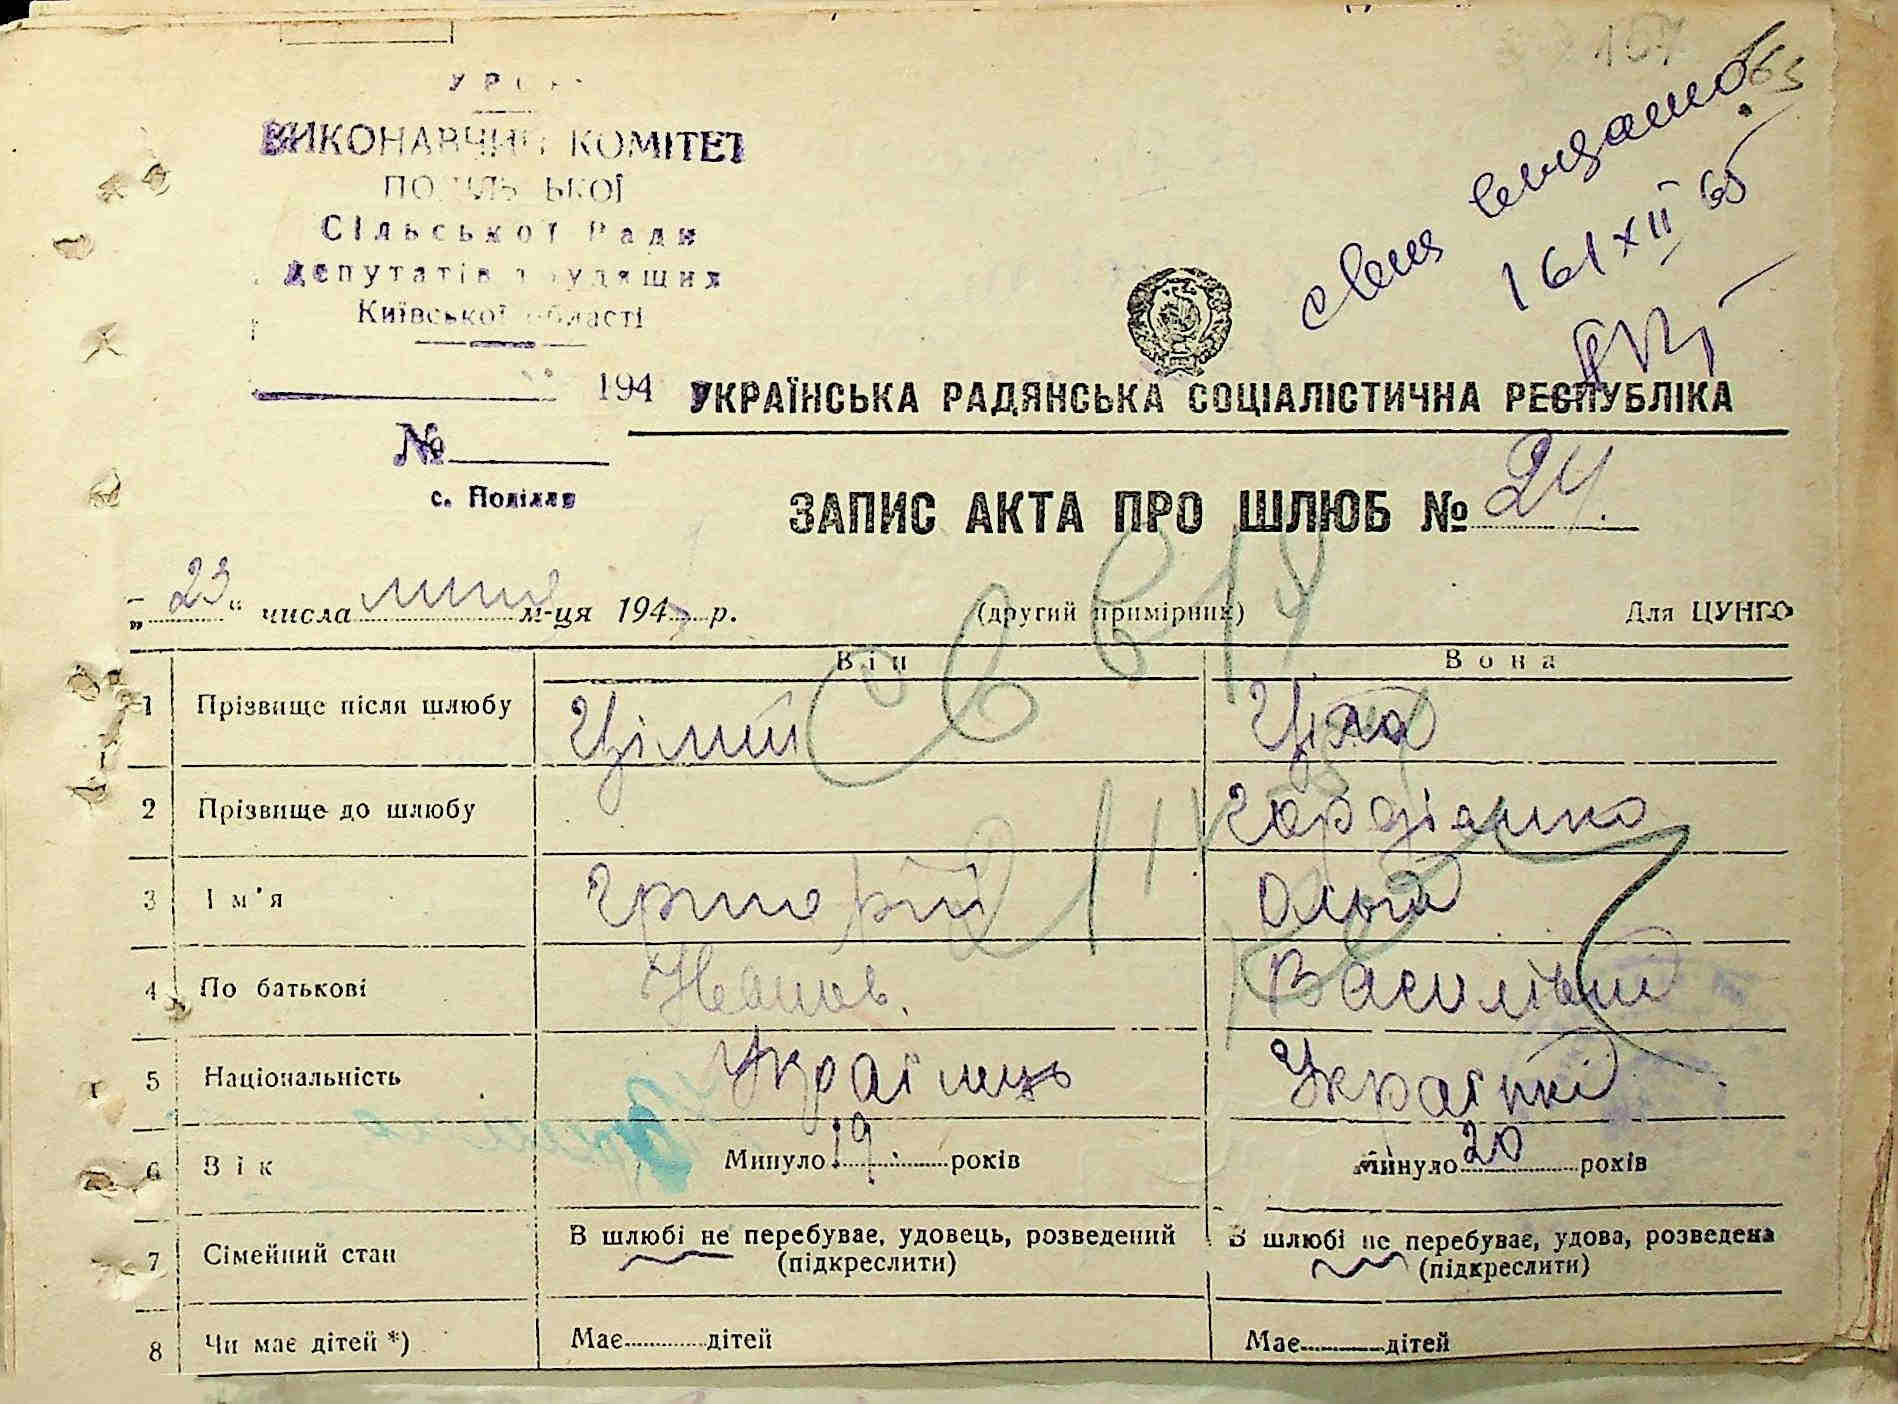 УРСР
ВИКОНАВЧИЙ КОМІТЕТ
ПОДІЛЬСЬКОЇ
Сільської Ради
депутатів трудящих
Київської області
194
№
с. Поділля
161 XII 65
УКРАЇНСЬКА РАДЯНСЬКА СОЦІАЛІСТИЧНА РЕСПУБЛІКА
ЗАПИС АКТА ПРО ШЛЮБ № 24.
„23“ числа м-ця 194 р. (другий примірник) Для ЦУНГО
Він Вона
1 Прізвище після шлюбу Цілий Ціла
2 Прізвище до шлюбу Гордієнко
3 Ім'я Григорій Ольга
4 По батькові Иванов. Василівни
5 Національність Українець Українкі
6 Вік Минуло 19 років минуло 20 років
7 Сімейний стан В шлюбі не перебуває, удовець, розведений (підкреслити) В шлюбі не перебуває, удова, розведена (підкреслити)
8 Чи має дітей *) Має дітей Має дітей